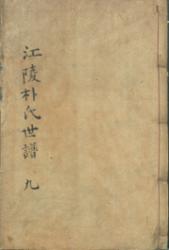 江陵朴氏世譜 九